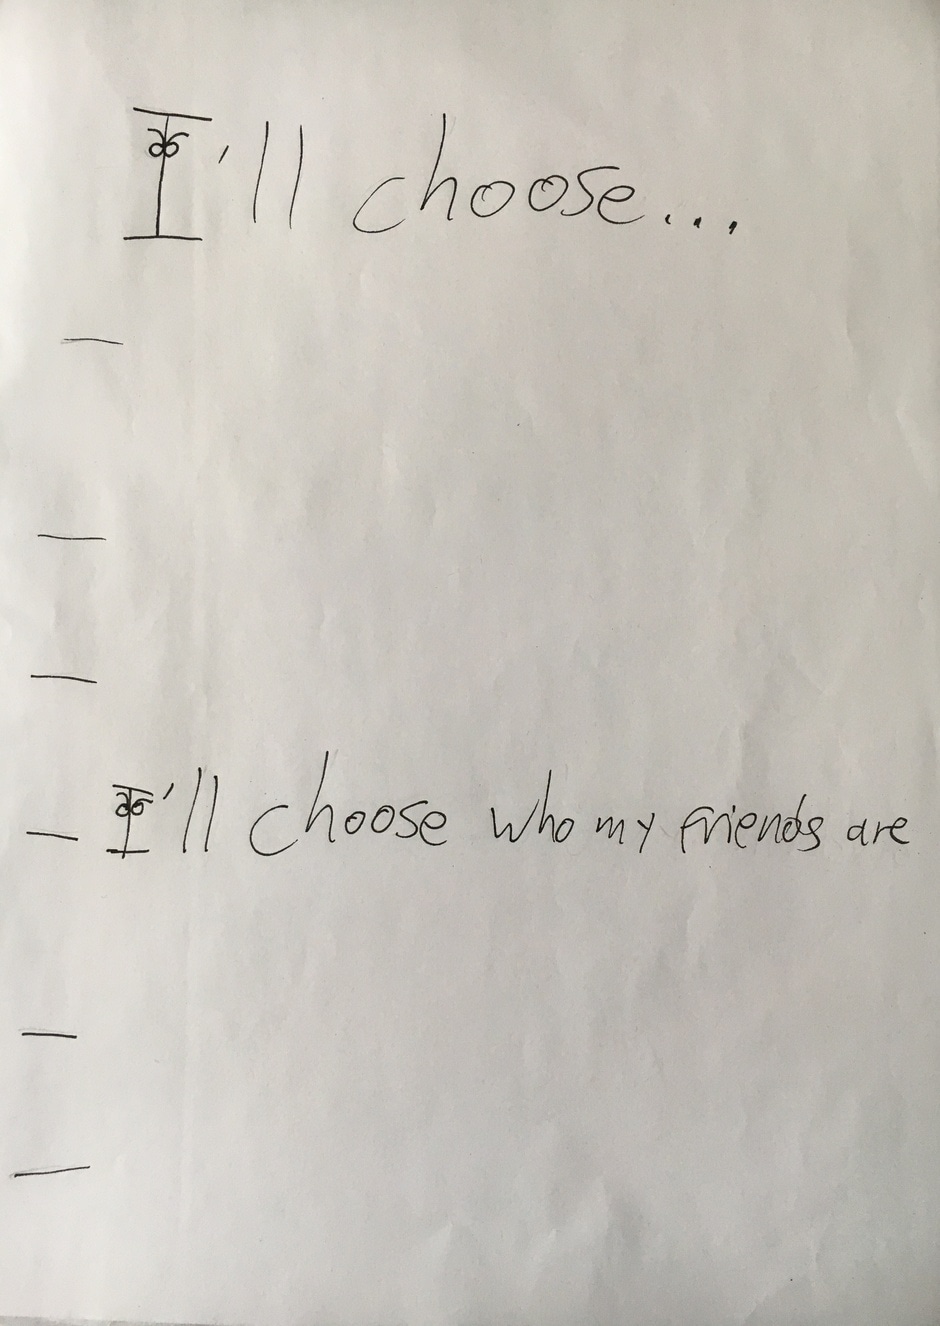 I'll choose...
—
—
—
— I'll choose who my friends are
—
—